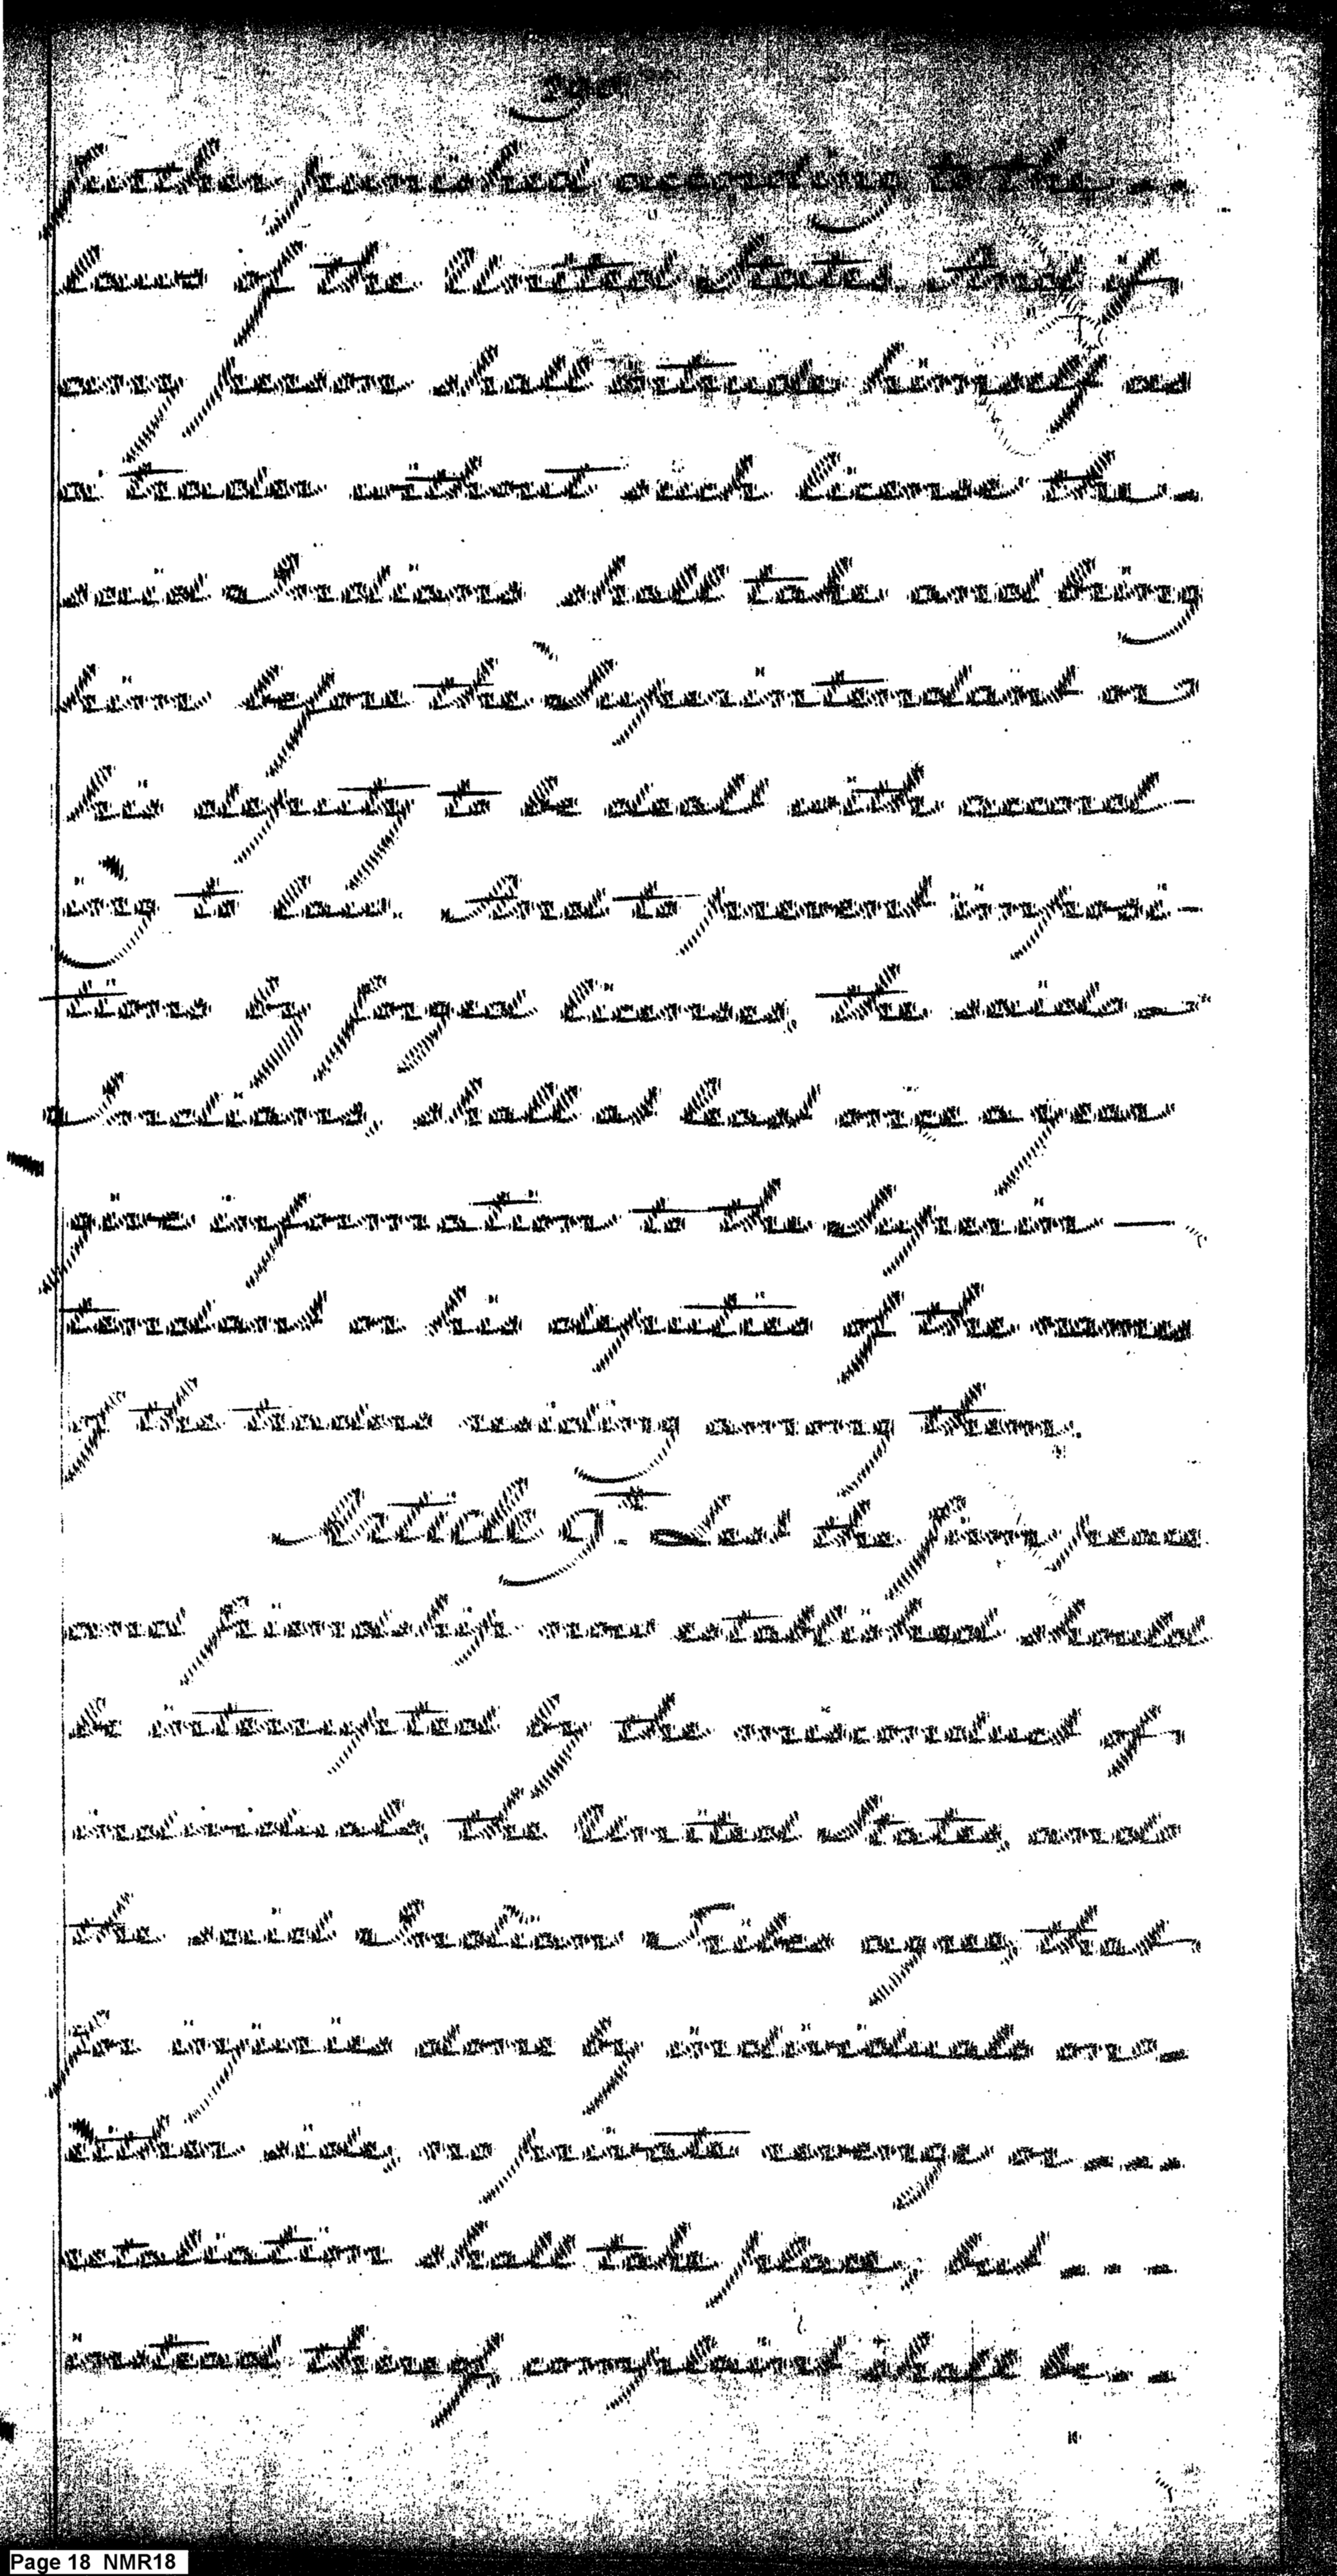 further punished according to the --
laws of the United States. And if
any person shall intrude himself as
a trader without such license the -
said Indians shall take and bring
him before the Superintendant or
his deputy to be dealt with accord-
ing to law. And to prevent imposi-
tions by forged licenses, the said -
Indians, shall at least once a year
give information to the Superin -
tendant or his deputies of the names
of the traders residing among them.
Article 9th. Lest the firm peace
and friendship now established should
be interrupted by the misconduct of
individuals, the United States, and
the said Indian Tribes agree, that
for injuries done by individuals on -
either side, no private revenge or ----
retaliation shall take place; but - - -
instead thereof, complaint shall be --
Page 18 NMR18